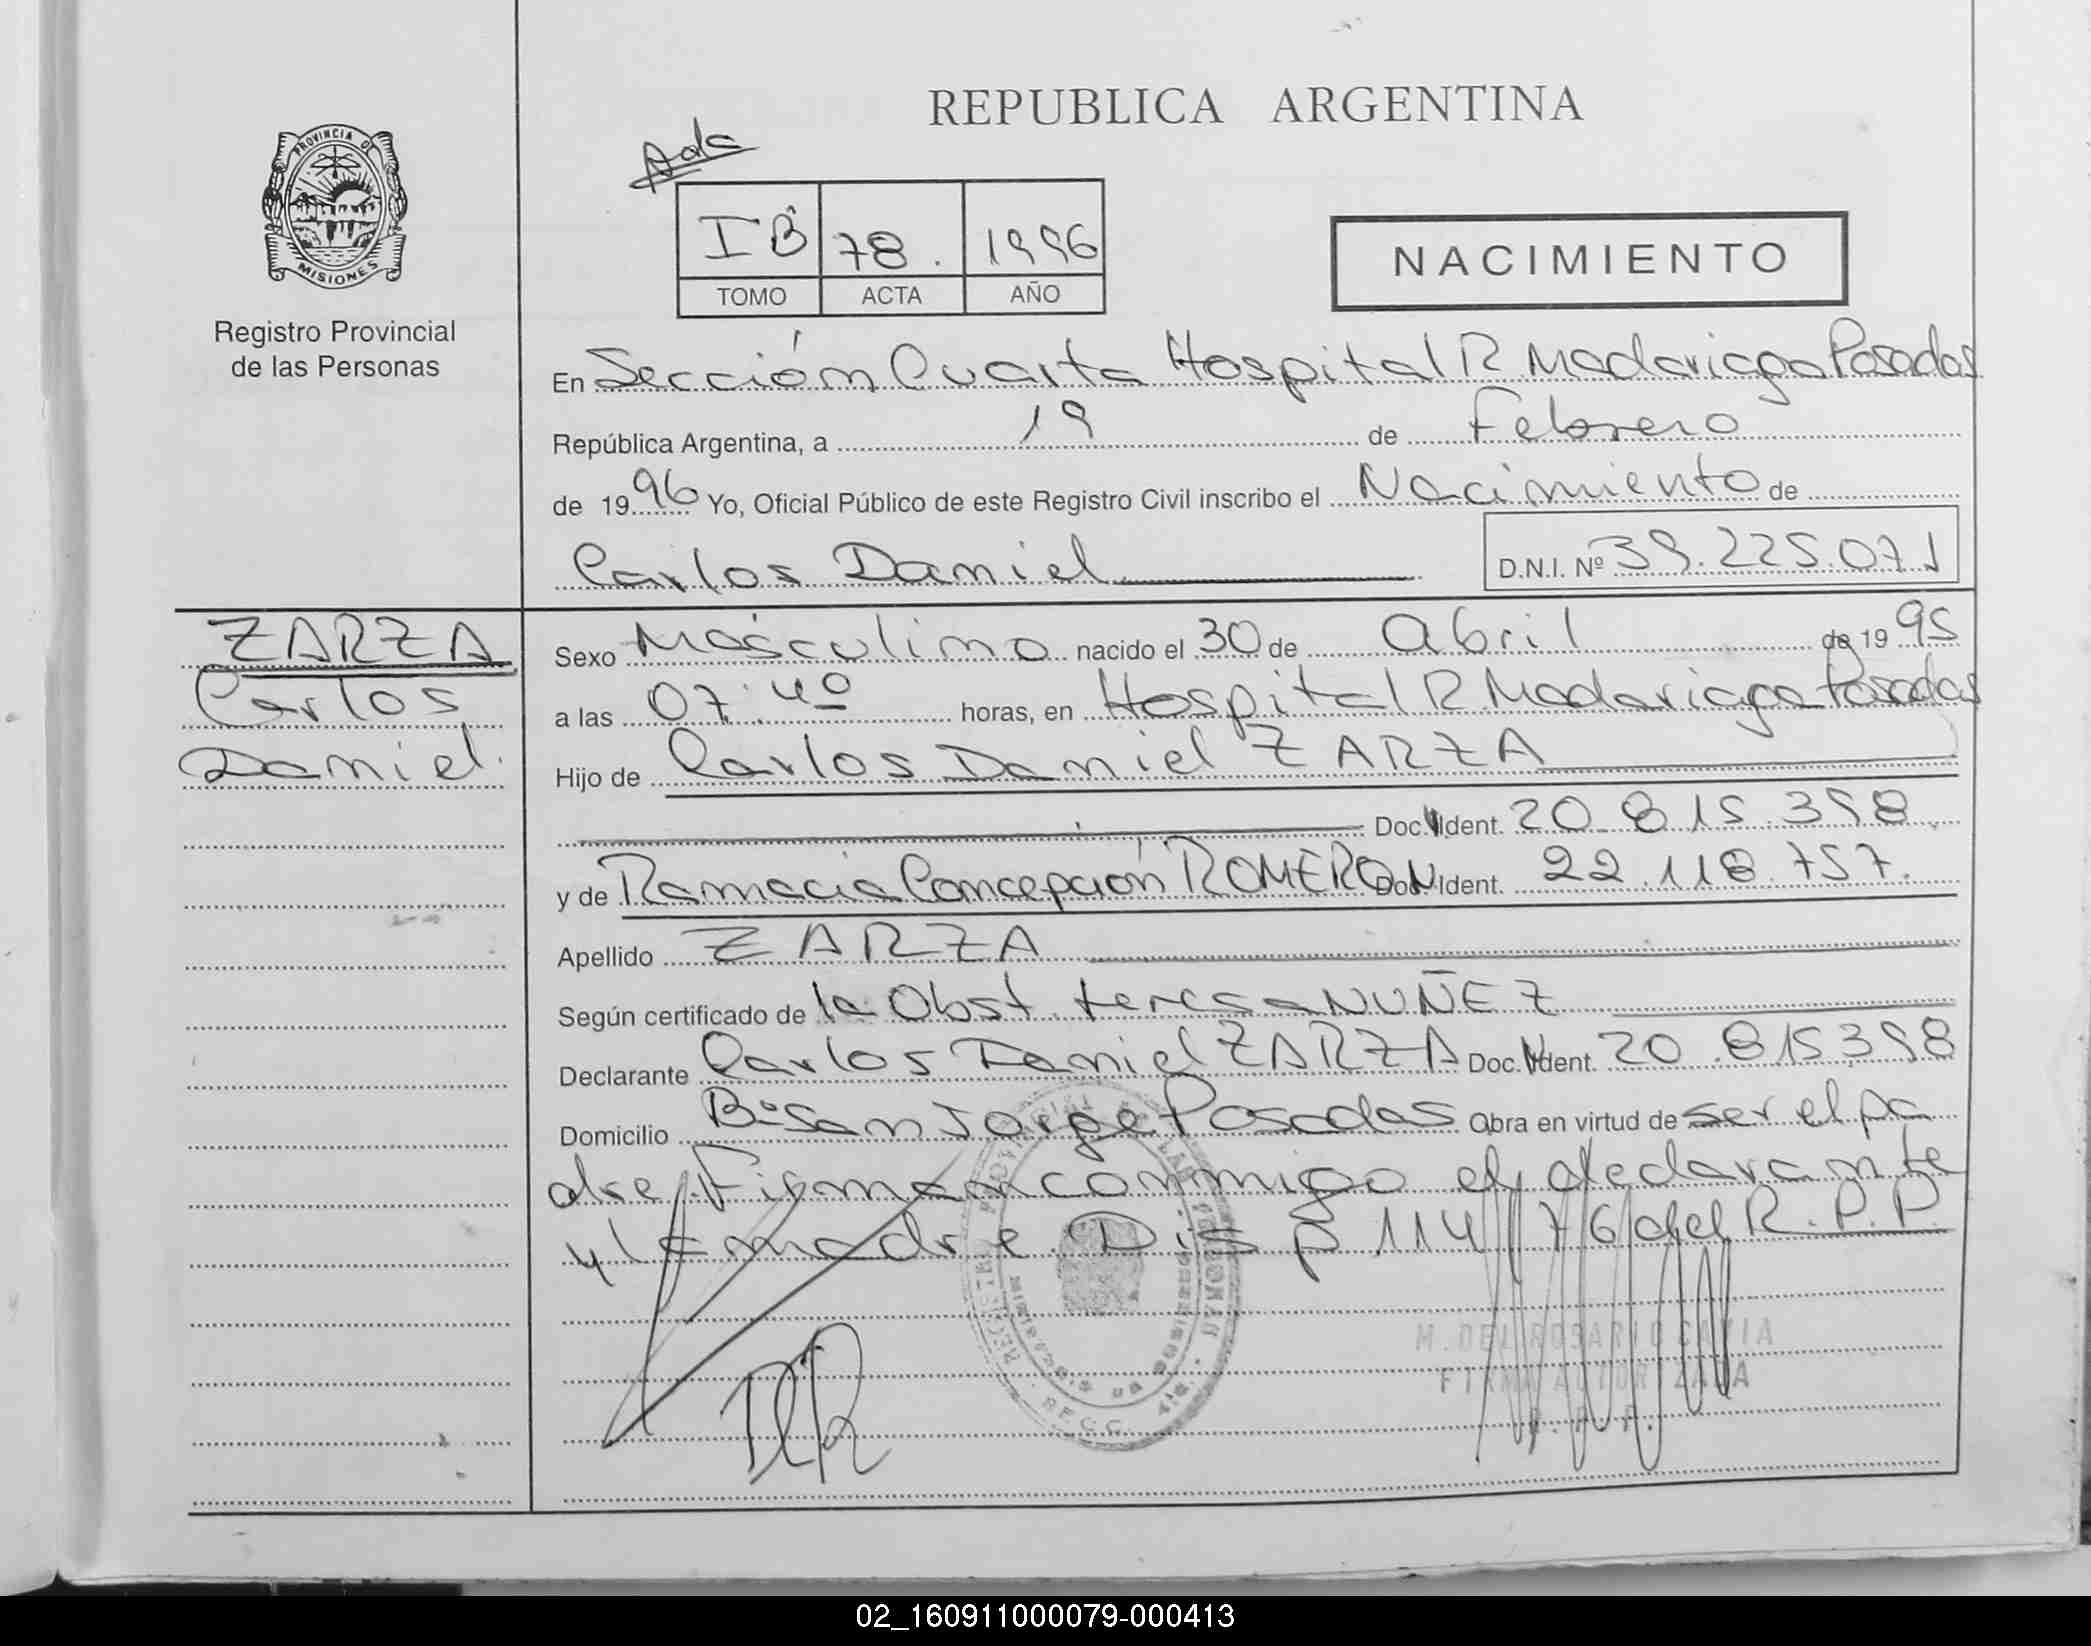 REPUBLICA ARGENTINA
PROVINCIA DE
MISIONES
Registro Provincial
de las Personas
I B 78. 1996
TOMO ACTA AÑO
NACIMIENTO
En Sección Cuarta Hospital R Madariaga Posadas
República Argentina, a 19 de Febrero
de 1996 Yo, Oficial Público de este Registro Civil inscribo el Nacimiento de
Carlos Daniel D.N.I. Nº 39.225.071
ZARZA
Carlos
Daniel.
Sexo Masculino nacido el 30 de Abril de 1995
a las 07:40 horas, en Hospital R Madariaga Posadas
Hijo de Carlos Daniel ZARZA
Doc. Ident. 20.815.398
y de Ramacia Concepción ROMERO Doc. N Ident. 22.118.757.
Apellido ZARZA
Según certificado de la Obst. teresa NUÑEZ
Declarante Carlos Daniel ZARZA Doc. N Ident. 20.815398
Domicilio Bº San Jorge Posadas Obra en virtud de ser el pa
dre, Firman conmigo el declarante
y la madre Disp 114/76 del R.P.P.
M. DEL ROSARIO
FIRMA AUTORIZADA
R. P. P.
02_160911000079-000413